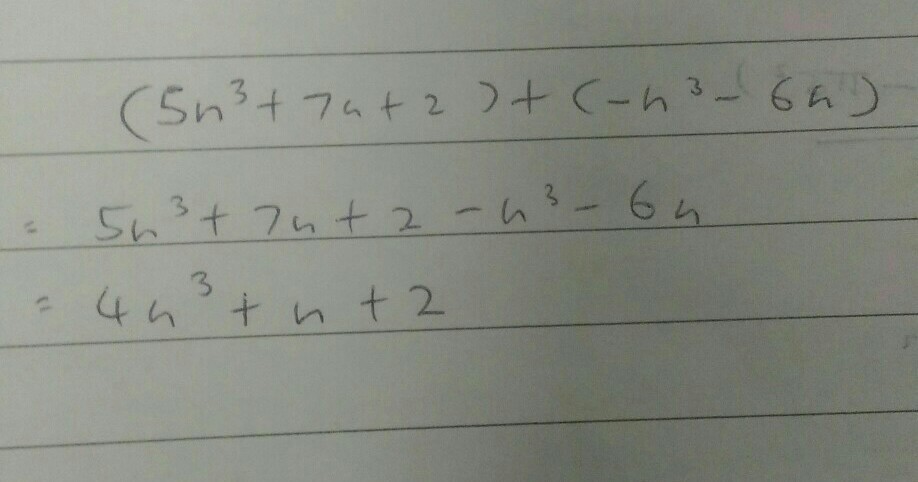 (5n³+7n+2)+(-n³-6n)
= 5n³+7n+2-n³-6n
= 4n³+n+2